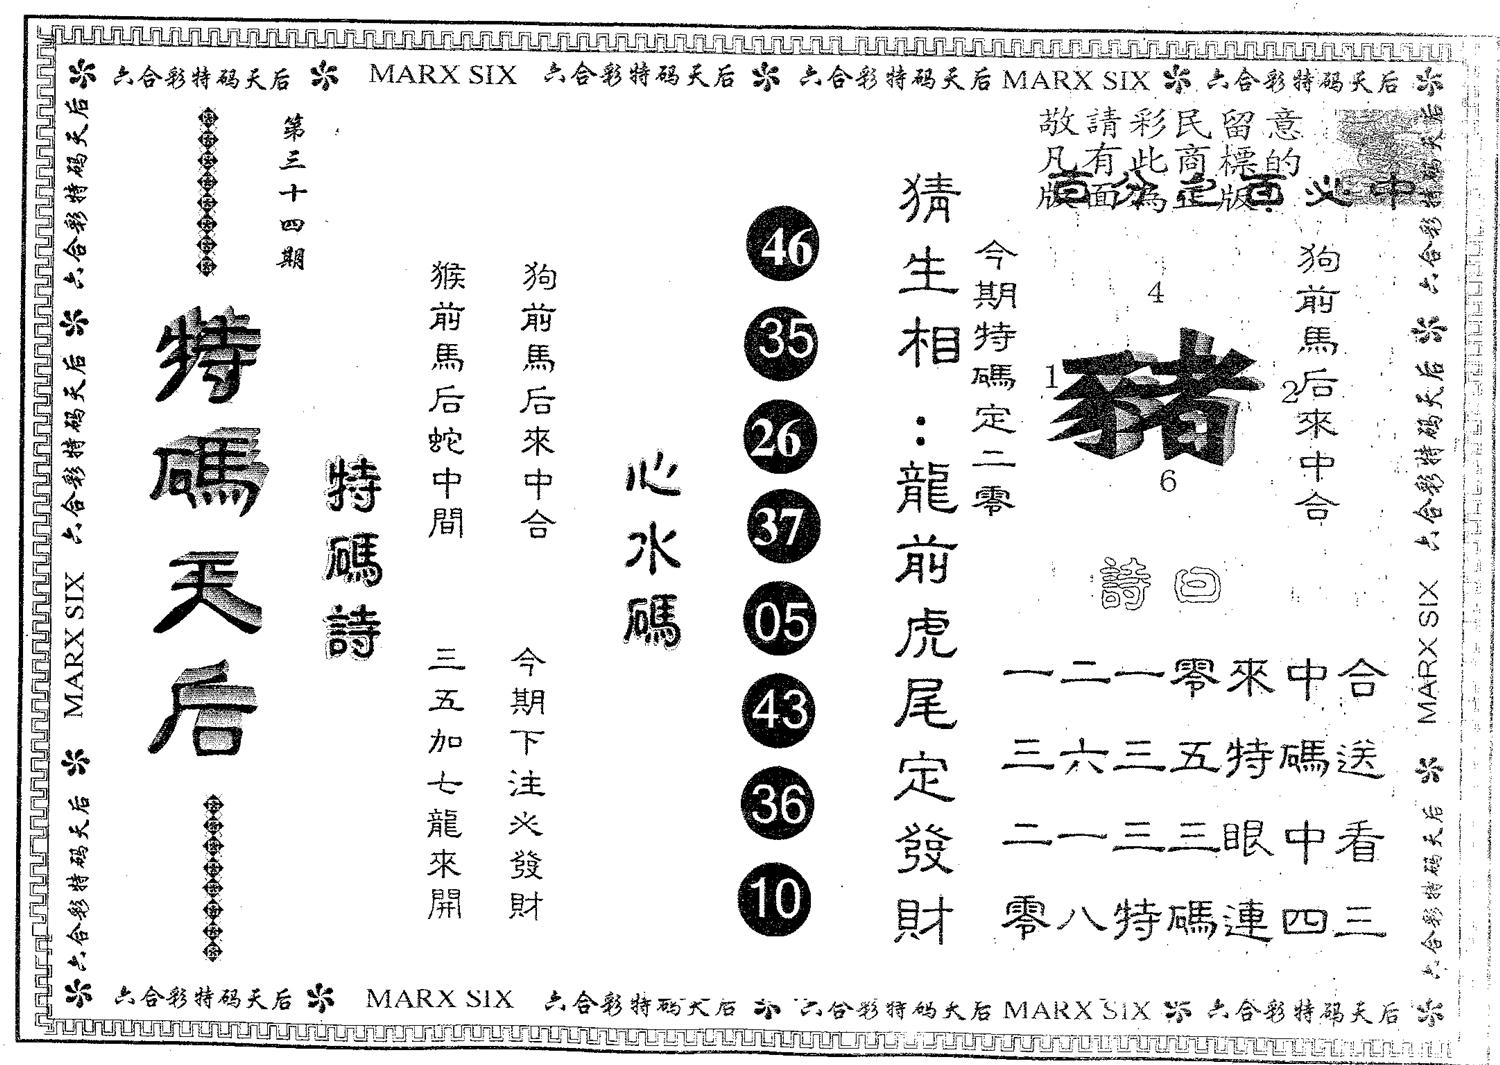 六合彩特码天后 MARX SIX 六合彩特码天后 六合彩特码天后 MARX SIX 六合彩特码天后
敬請彩民留意
凡有此商標的
版面為正版
百分之百必中
狗前馬后來中合
4
1
豬
2
6
今期特碼定二零
詩曰
一二一零來中合
三六三五特碼送
二一三三眼中看
零八特碼連四三
猜生相:龍前虎尾定發財
46
35
26
37
05
43
36
10
心水碼
狗前馬后來中合
今期下注必發財
猴前馬后蛇中間
三五加七龍來開
特碼詩
第三十四期
特碼天后
六合彩特码天后 六合彩特码天后 MARX SIX 六合彩特码天后
六合彩特码天后 六合彩特码天后 MARX SIX 六合彩特码天后
六合彩特码天后 MARX SIX 六合彩特码天后 六合彩特码天后 MARX SIX 六合彩特码天后